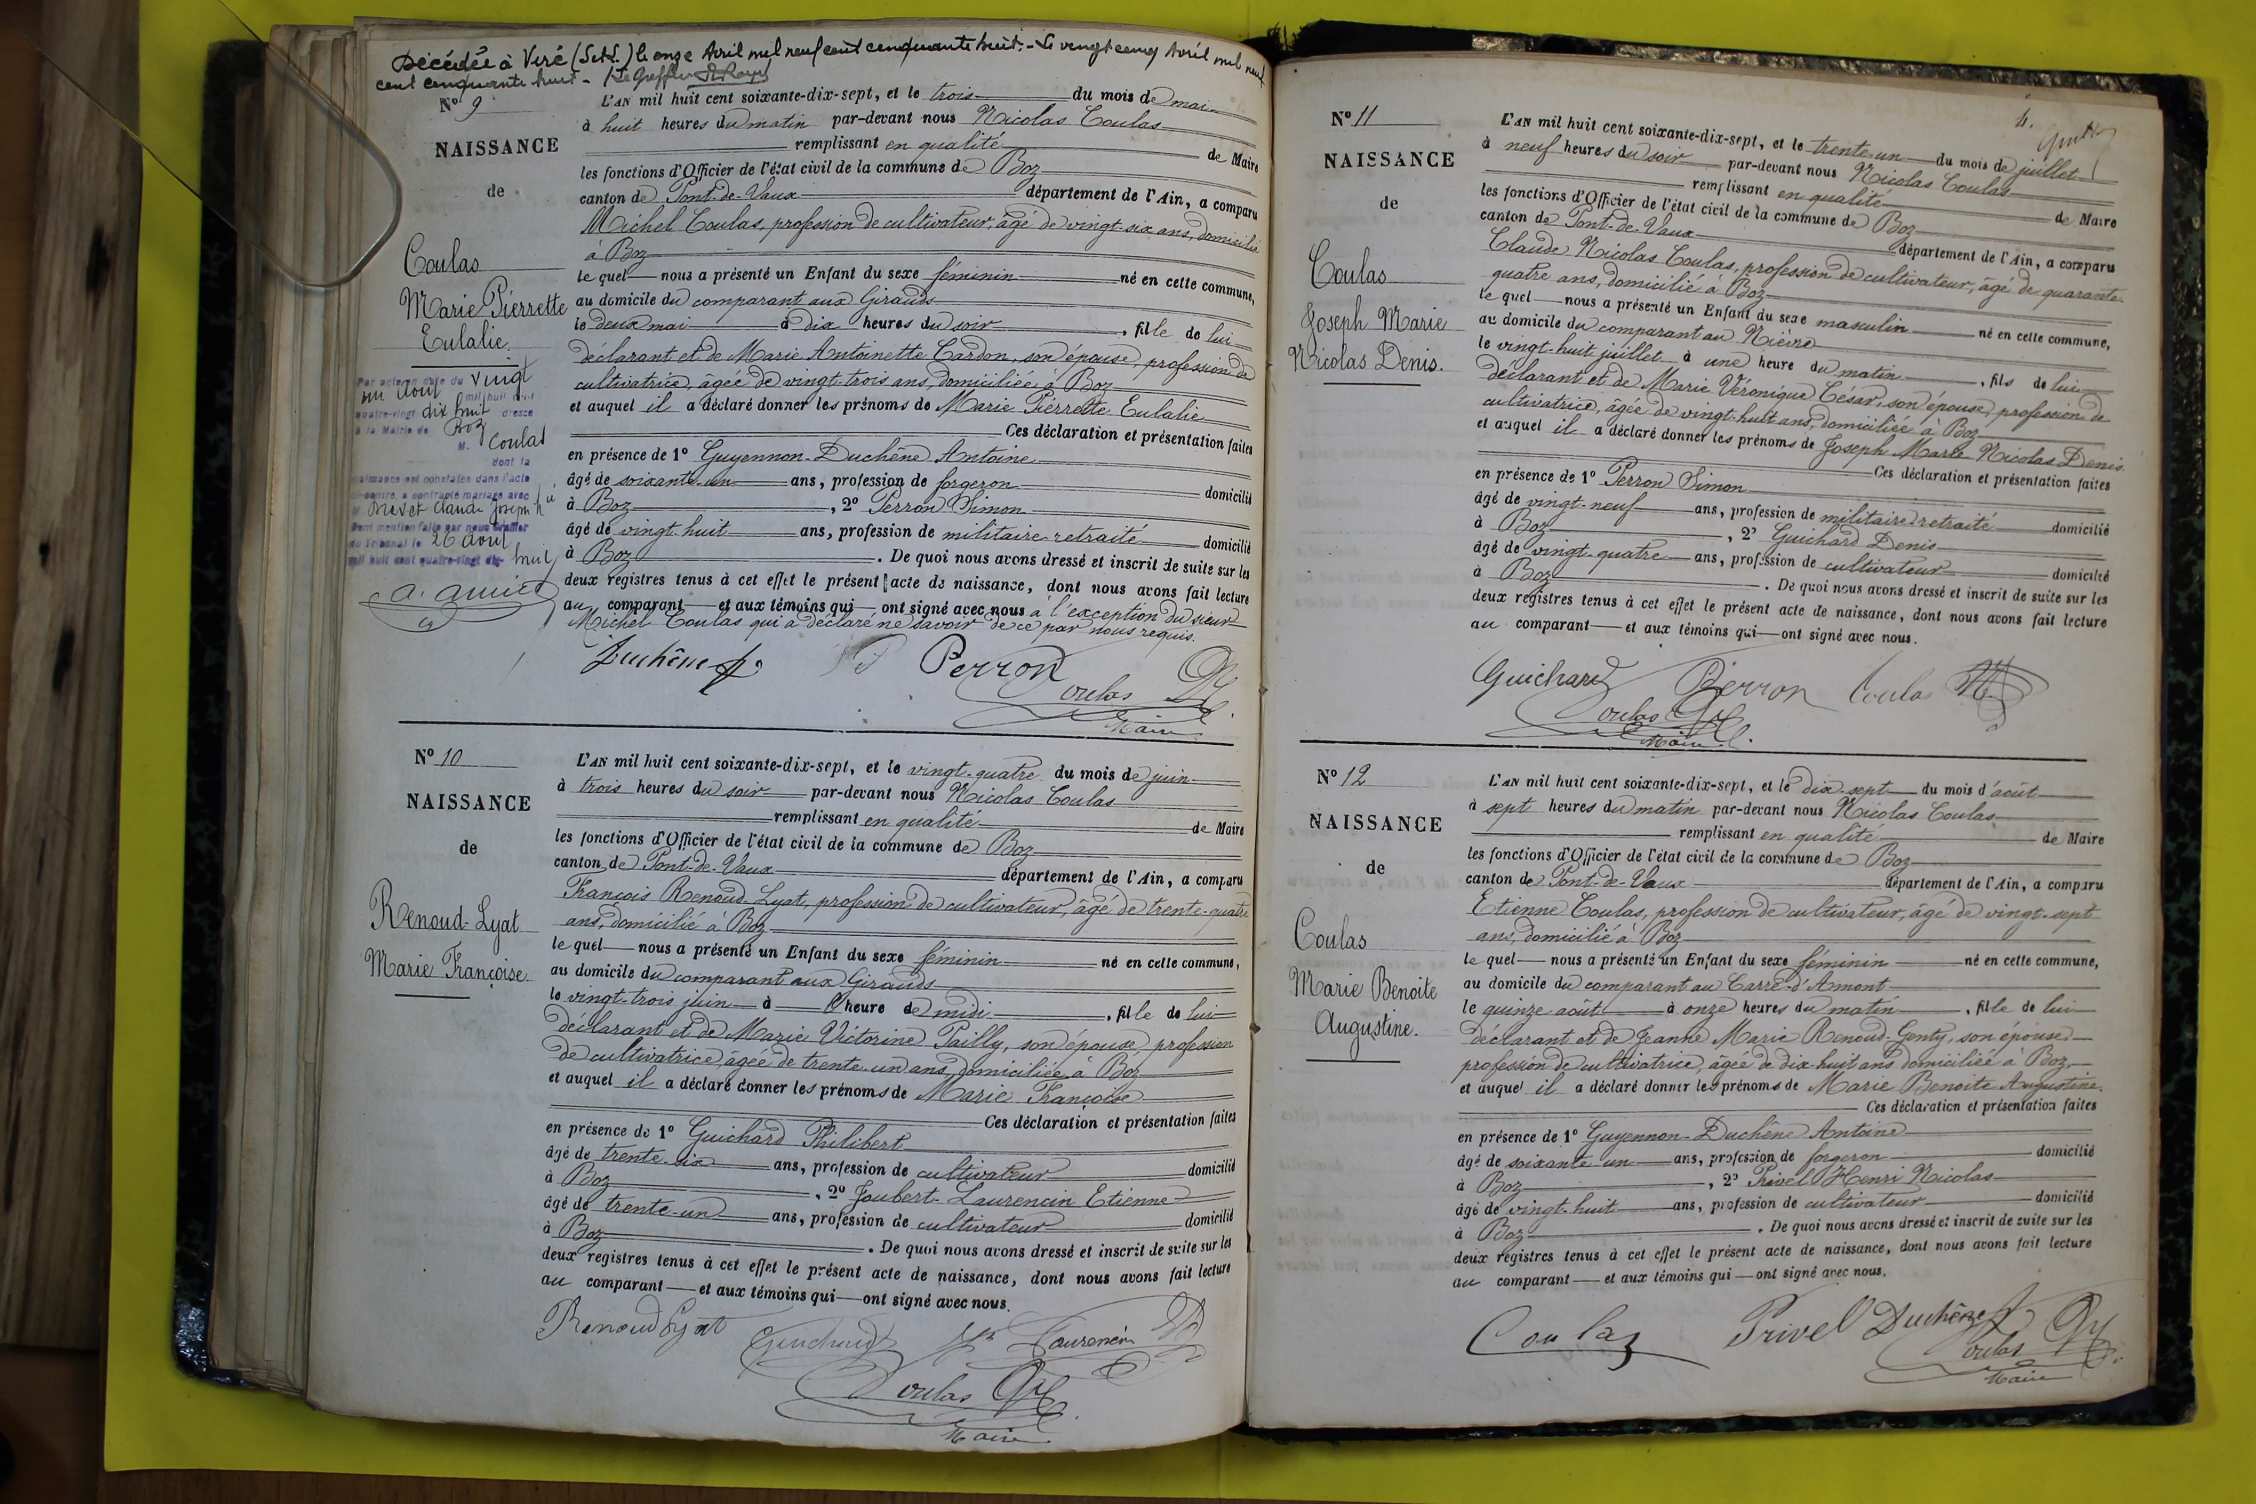 Décédée à Viré (S.et.L.) le onze Avril mil neuf cent cinquante huit. - Le vingt cinq Avril mil neuf
cent cinquante huit - Le Greffier
N° 9
NAISSANCE
de
Coulas
Marie Pierrette
Eulalie.
Par acte en date du vingt
un aout mil huit cent
quatre-vingt dix huit dressé
à la Mairie de Boz
M. Coulas
dont la
naissance est constatée dans l'acte
ci-contre, a contracté mariage avec
M. Claude Joseph
Dont mention faite par nous Greffier
du Tribunal le 26 aout
mil huit cent quatre-vingt dix huit
L'AN mil huit cent soixante-dix-sept, et le trois du mois de mai
à huit heures du matin par-devant nous Nicolas Coulas
remplissant en qualité de Maire
les fonctions d'Officier de l'état civil de la commune de Boz
canton de Pont-de-Vaux département de l'Ain, a comparu
Michel Coulas, profession de cultivateur, âgé de vingt-six ans, domicilié
à Boz
le quel nous a présenté un Enfant du sexe féminin né en cette commune,
au domicile du comparant aux Girauds
le deux mai à dix heures du soir, fille de lui
déclarant et de Marie Antoinette Cardon, son épouse, profession de
cultivatrice, âgée de vingt-trois ans, domiciliée à Boz
et auquel il a déclaré donner les prénoms de Marie Pierrette Eulalie
Ces déclaration et présentation faites
en présence de 1° Guyennon-Duchêne Antoine
âgé de soixante-un ans, profession de forgeron domicilié
à Boz, 2° Perron Simon
âgé de vingt-huit ans, profession de militaire retraité domicilié
à Boz. De quoi nous avons dressé et inscrit de suite sur les
deux registres tenus à cet effet le présent acte de naissance, dont nous avons fait lecture
au comparant et aux témoins qui ont signé avec nous à l'exception du sieur
Michel Coulas qui a déclaré ne savoir de ce par nous requis.
Duchêne Perron
Coulas
Maire
N° 10
NAISSANCE
de
Renoud-Lyat
Marie Françoise
L'AN mil huit cent soixante-dix-sept, et le vingt-quatre du mois de juin
à trois heures du soir par-devant nous Nicolas Coulas
remplissant en qualité de Maire
les fonctions d'Officier de l'état civil de la commune de Boz
canton de Pont-de-Vaux département de l'Ain, a comparu
François Renoud-Lyat, profession de cultivateur, âgé de trente-quatre
ans, domicilié à Boz
le quel nous a présenté un Enfant du sexe féminin né en cette commune,
au domicile du comparant aux Girauds
le vingt-trois juin à l'heure de midi, fille de lui
déclarant et de Marie Victorine Pailly, son épouse, profession
de cultivatrice, âgée de trente-un ans, domiciliée à Boz
et auquel il a déclaré donner les prénoms de Marie Françoise
Ces déclaration et présentation faites
en présence de 1° Guichard Philibert
âgé de trente-six ans, profession de cultivateur domicilié
à Boz, 2° Joubert-Laurencin Etienne
âgé de trente-un ans, profession de cultivateur domicilié
à Boz. De quoi nous avons dressé et inscrit de suite sur les
deux registres tenus à cet effet le présent acte de naissance, dont nous avons fait lecture
au comparant et aux témoins qui ont signé avec nous.
Renoud Lyat Guichard Laurencin
Coulas
Maire
4.
N° 11
NAISSANCE
de
Coulas
Joseph Marie
Nicolas Denis.
L'AN mil huit cent soixante-dix-sept, et le trente-un du mois de juillet
à neuf heures du soir par-devant nous Nicolas Coulas
remplissant en qualité de Maire
les fonctions d'Officier de l'état civil de la commune de Boz
canton de Pont-de-Vaux département de l'Ain, a comparu
Claude Nicolas Coulas, profession de cultivateur, âgé de quarante-
quatre ans, domicilié à Boz
le quel nous a présenté un Enfant du sexe masculin né en cette commune,
au domicile du comparant au
le vingt-huit juillet à une heure du matin, fils de lui
déclarant et de Marie Véronique César, son épouse, profession de
cultivatrice, âgée de vingt-huit ans, domiciliée à Boz
et auquel il a déclaré donner les prénoms de Joseph Marie Nicolas Denis.
Ces déclaration et présentation faites
en présence de 1° Perron Simon
âgé de vingt-neuf ans, profession de militaire retraité domicilié
à Boz, 2° Guichard Denis
âgé de vingt-quatre ans, profession de cultivateur domicilié
à Boz. De quoi nous avons dressé et inscrit de suite sur les
deux registres tenus à cet effet le présent acte de naissance, dont nous avons fait lecture
au comparant et aux témoins qui ont signé avec nous.
Guichard Perron Coulas
Coulas
Maire
N° 12
NAISSANCE
de
Coulas
Marie Benoite
Augustine.
L'AN mil huit cent soixante-dix-sept, et le dix-sept du mois d'août
à sept heures du matin par-devant nous Nicolas Coulas
remplissant en qualité de Maire
les fonctions d'Officier de l'état civil de la commune de Boz
canton de Pont-de-Vaux département de l'Ain, a comparu
Etienne Coulas, profession de cultivateur, âgé de vingt-sept
ans, domicilié à Boz
le quel nous a présenté un Enfant du sexe féminin né en cette commune,
au domicile du comparant au Carré-d'Amont
le quinze août à onze heures du matin, fille de lui
déclarant et de Jeanne Marie Renoud-Genty, son épouse
profession de cultivatrice, âgée de dix-huit ans domiciliée à Boz,
et auquel il a déclaré donner les prénoms de Marie Benoite Augustine.
Ces déclaration et présentation faites
en présence de 1° Guyennon-Duchêne Antoine
âgé de soixante-un ans, profession de forgeron domicilié
à Boz, 2° Privel Henri Nicolas
âgé de vingt-huit ans, profession de cultivateur domicilié
à Boz. De quoi nous avons dressé et inscrit de suite sur les
deux registres tenus à cet effet le présent acte de naissance, dont nous avons fait lecture
au comparant et aux témoins qui ont signé avec nous.
Coulas Privel Duchêne
Coulas
Maire